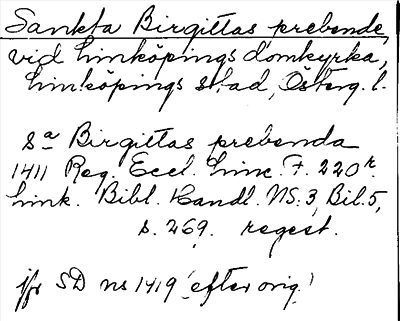 Sankta Birgittas prebende,
vid Linköpings domkyrka,
Linköpings stad, Österg. l.
Sa Birgittas prebenda
1411 Reg. Eccl. Linc. F. 220 r.
Link. Bibl. Handl. NS. 3, Bil. 5,
s. 269. regest.
jfr SD ns 1419 (efter orig.)